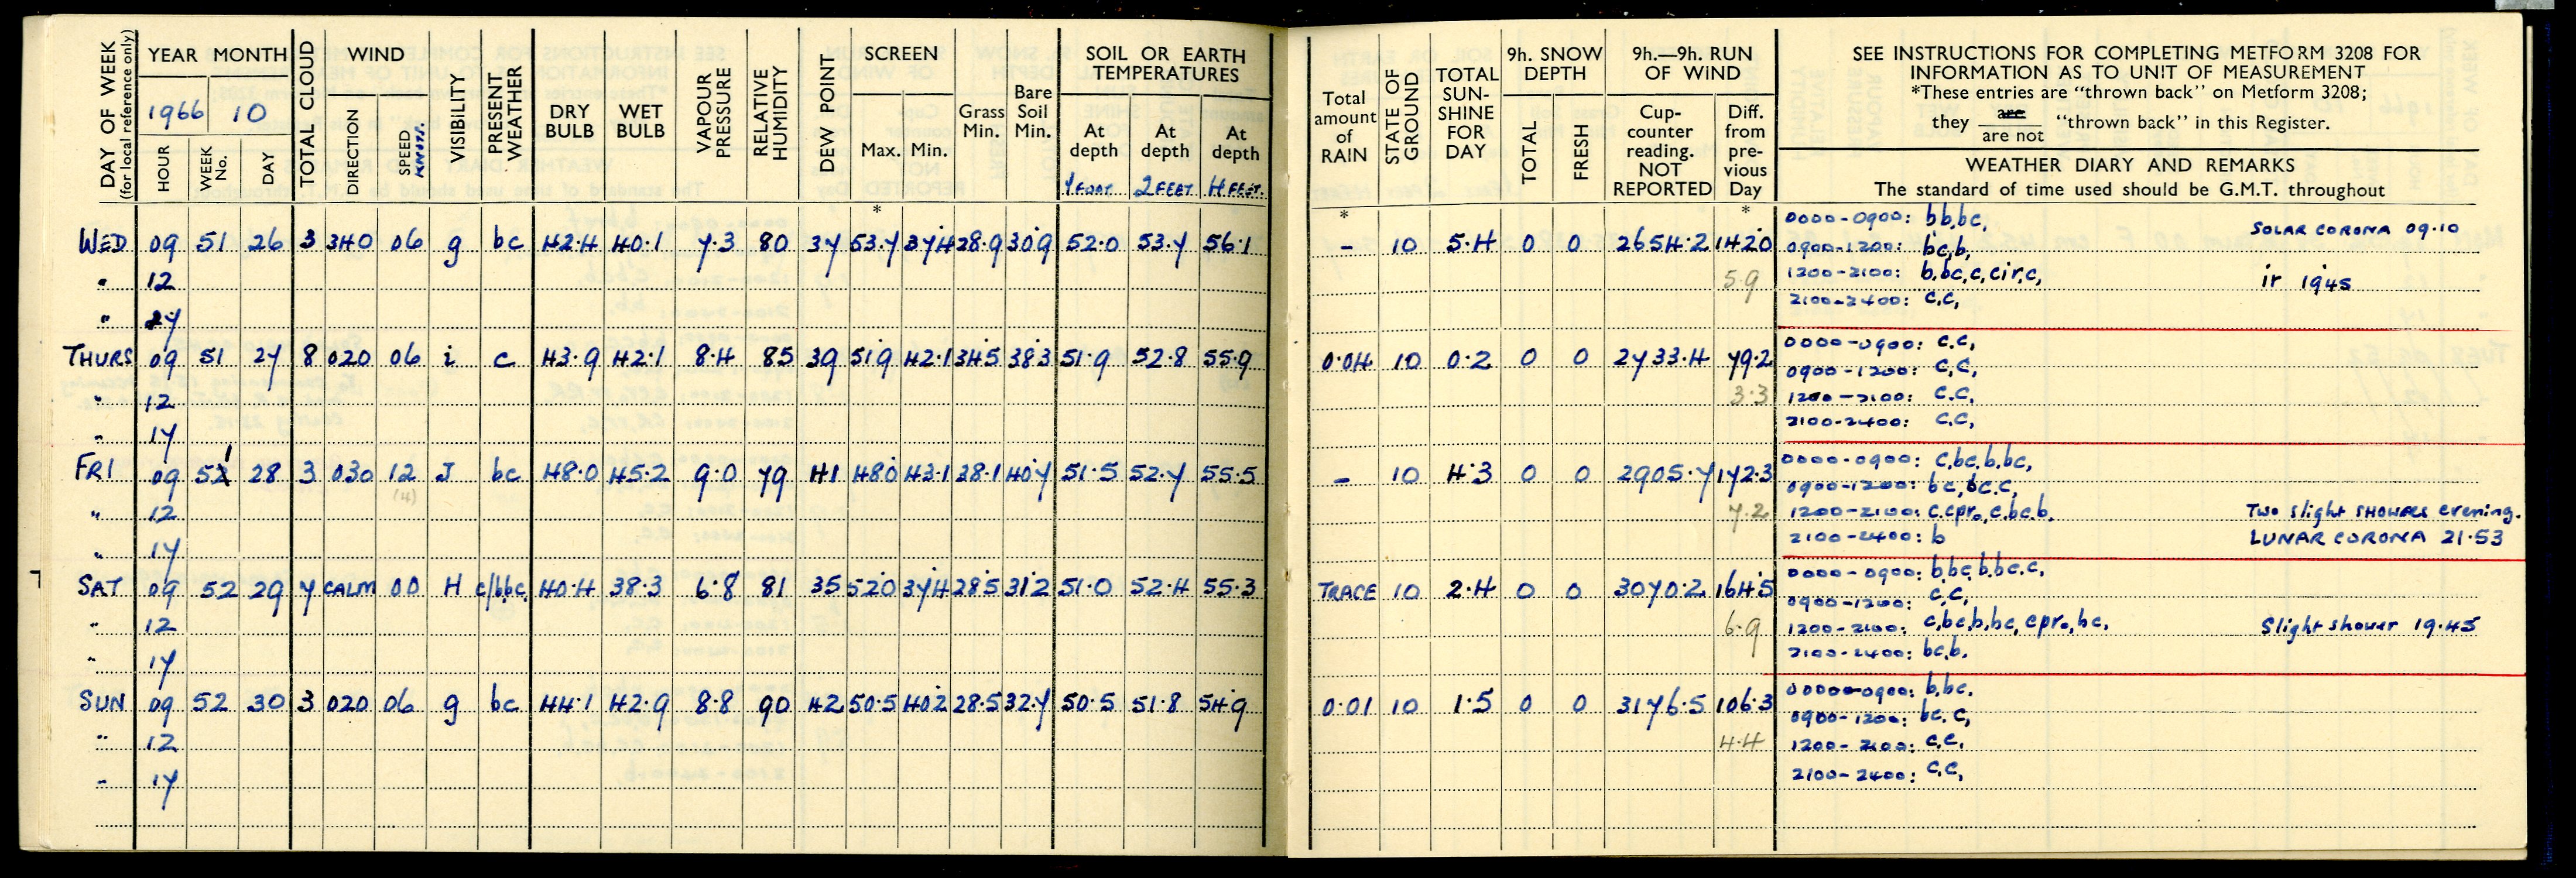 DAY OF WEEK (for local reference only) YEAR MONTH TOTAL CLOUD WIND VISIBILITY PRESENT WEATHER DRY BULB WET BULB VAPOUR PRESSURE RELATIVE HUMIDITY DEW POINT SCREEN Grass Min. Bare Soil Min. SOIL OR EARTH TEMPERATURES
1966 10
HOUR WEEK No. DAY DIRECTION SPEED KNOTS. Max. Min. At depth At depth At depth
1 FOOT 2 FEET 4 FEET.
*
WED 09 51 26 3 340 06 g bc 42.4 40.1 7.3 80 37 53.7 37.4 28.9 30.9 52.0 53.7 56.1
" 12
" 27
THURS 09 51 27 8 020 06 i c 43.9 42.1 8.4 85 39 51.9 42.1 34.5 38.3 51.9 52.8 55.9
" 12
" 17
FRI 09 521 28 3 030 12 J bc 48.0 45.2 9.0 79 41 48.0 43.1 38.1 40.7 51.5 52.7 55.5
(4)
" 12
" 17
SAT 09 52 29 7 CALM 00 H c/bbc. 40.4 38.3 6.8 81 35 52.0 37.4 28.5 31.2 51.0 52.4 55.3
" 12
" 17
SUN 09 52 30 3 020 06 g bc 44.1 42.9 8.8 90 42 50.5 40.2 28.5 32.7 50.5 51.8 54.9
" 12
" 17
Total amount of RAIN STATE OF GROUND TOTAL SUN-SHINE FOR DAY 9h. SNOW DEPTH 9h.—9h. RUN OF WIND
TOTAL FRESH Cup-counter reading. NOT REPORTED Diff. from pre-vious Day
SEE INSTRUCTIONS FOR COMPLETING METFORM 3208 FOR
INFORMATION AS TO UNIT OF MEASUREMENT
*These entries are "thrown back" on Metform 3208;
they are / are not "thrown back" in this Register.
WEATHER DIARY AND REMARKS
The standard of time used should be G.M.T. throughout
* *
- 10 5.4 0 0 2654.2 142.0
5.9
0000-0900: b,bc,
SOLAR CORONA 09.10
0900-1200: bc,b,
1200-2100: b,bc,c,cir,c, ir 1945
2100-2400: c,c,
0.04 10 0.2 0 0 2733.4 79.2
3.3
0000-0900: c.c,
0900-1200: c,c,
1200-2100: c.c,
2100-2400: c.c,
- 10 4.3 0 0 2905.7 172.3
7.2
0000-0900: c,bc.b.bc,
0900-1200: bc,bc.c,
1200-2100: c.cpr₀,c.bc.b. Two slight SHOWERS evening.
2100-2400: b LUNAR CORONA 21.53
TRACE 10 2.4 0 0 3070.2 164.5
6.9
0000-0900: b,bc,b,bc.c,
0900-1200: c,c,
1200-2100: c,bc,b,bc,cpr₀,bc, Slight shower 19.45
2100-2400: bc,b.
0.01 10 1.5 0 0 3176.5 106.3
4.4
0000-0900: b,bc.
0900-1200: bc.c,
1200-2100: c.c,
2100-2400: c.c,